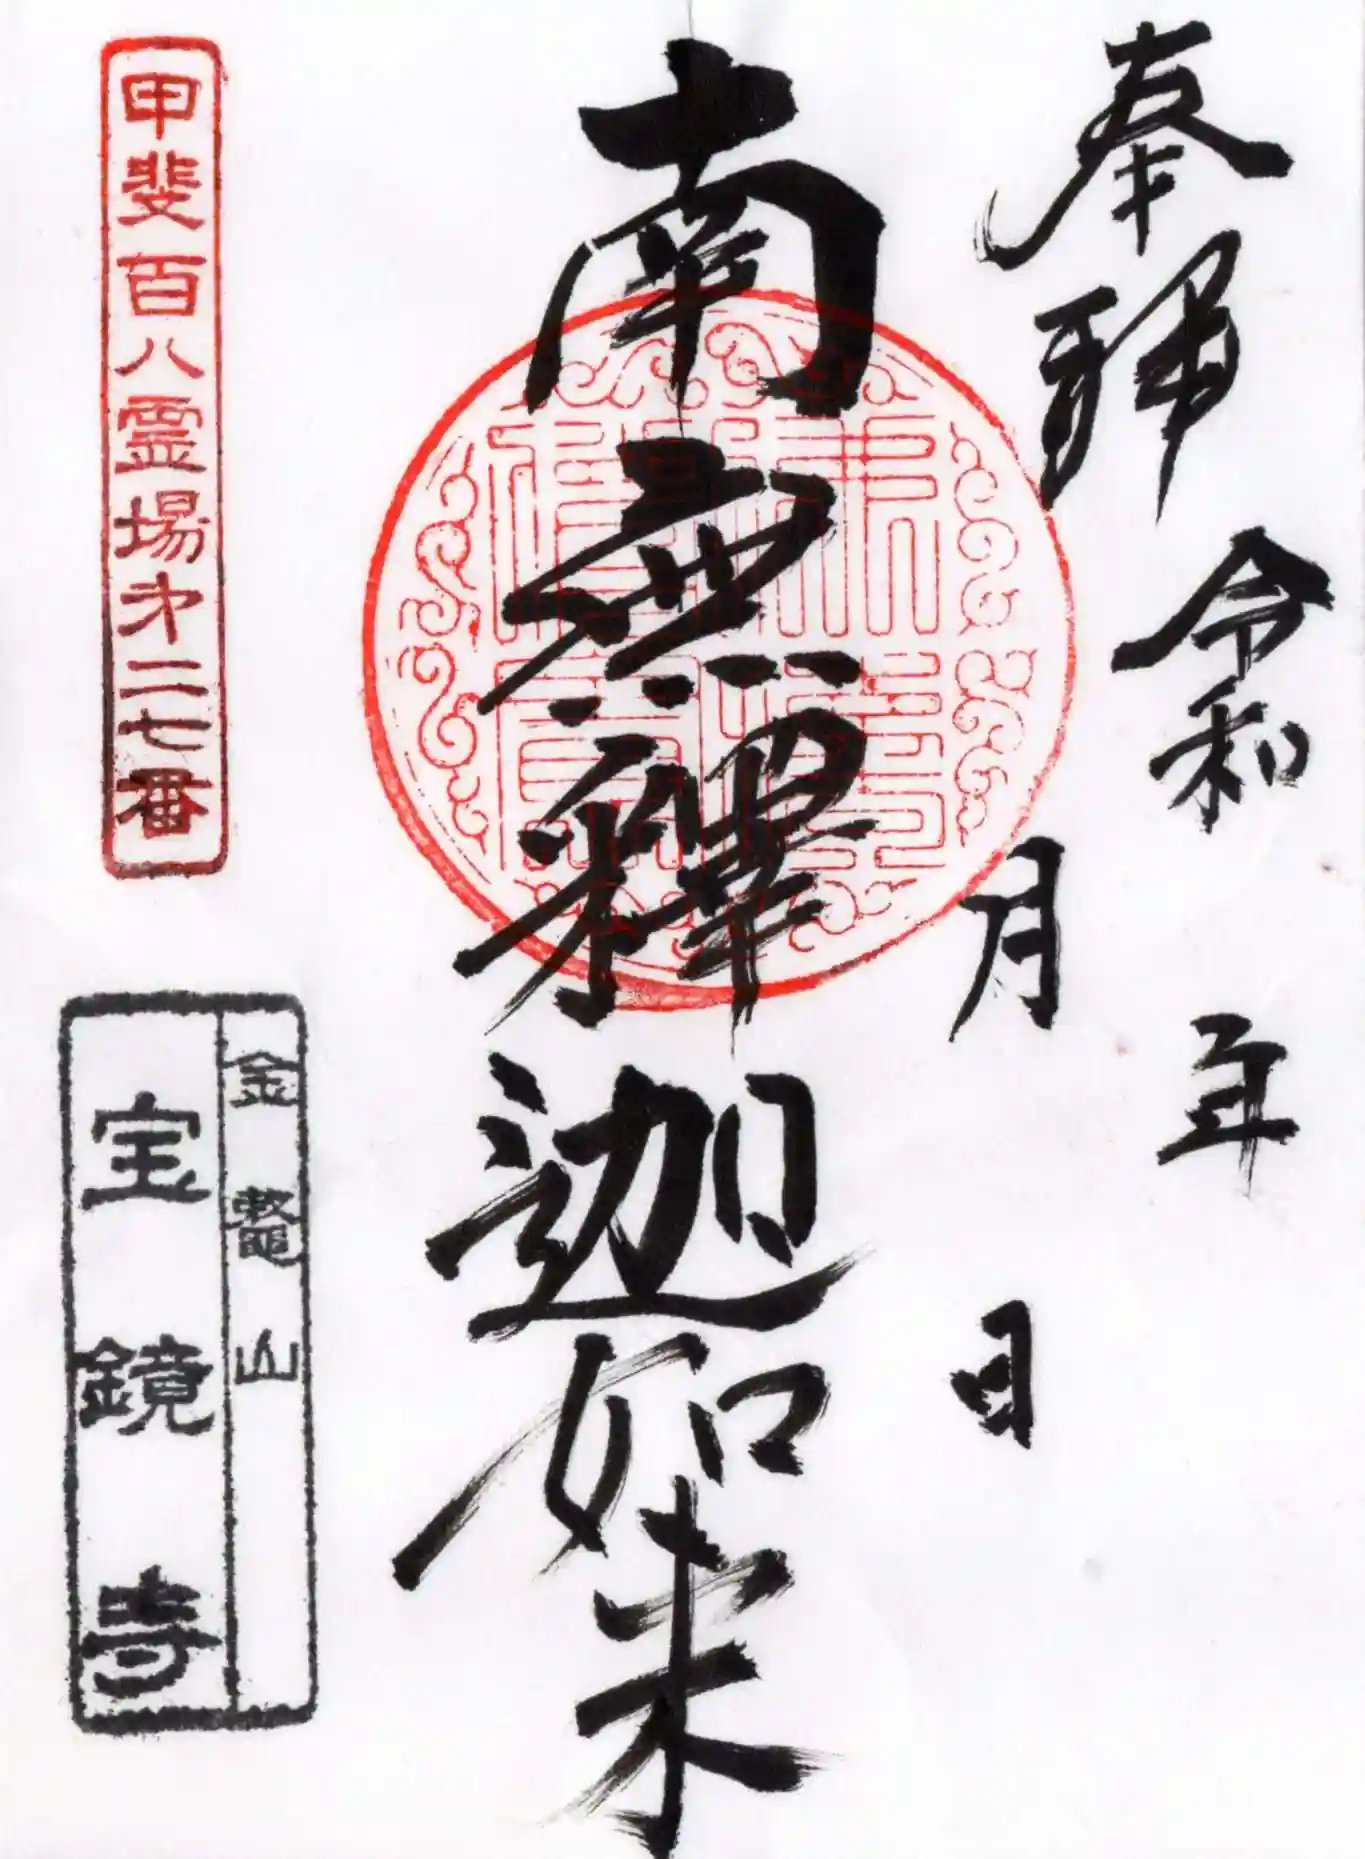 奉拝
令和 年
月 日
南無釋迦如来
甲斐百八霊場第二七番
金鼇山
宝鏡寺